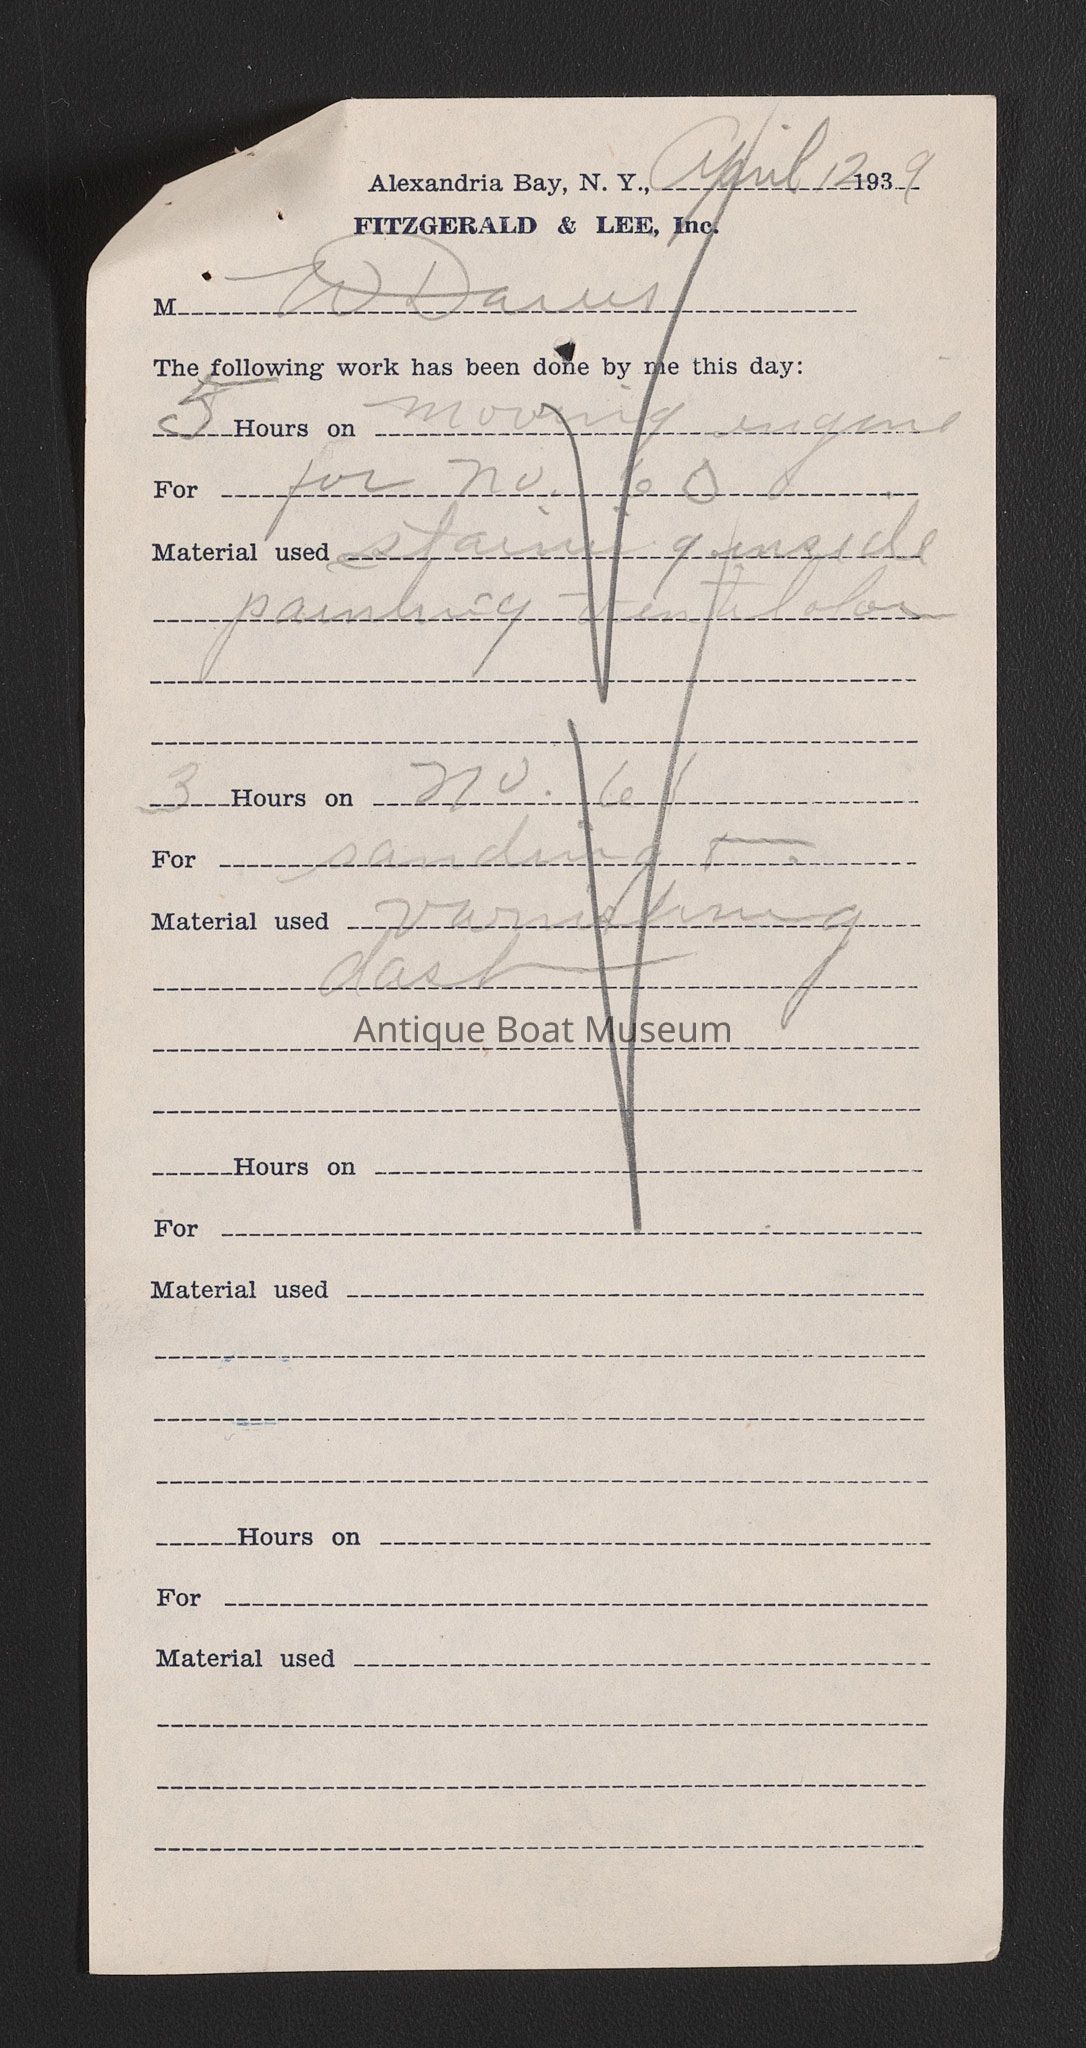 Alexandria Bay, N. Y., April 12 1939
FITZGERALD & LEE, Inc.
M W Davis
The following work has been done by me this day:
5 Hours on moving engine
For for no. 60
Material used staining inside
painting ventilator
3 Hours on no. 61
For sanding +
Material used varnishing
dash
Antique Boat Museum
Hours on
For
Material used
Hours on
For
Material used